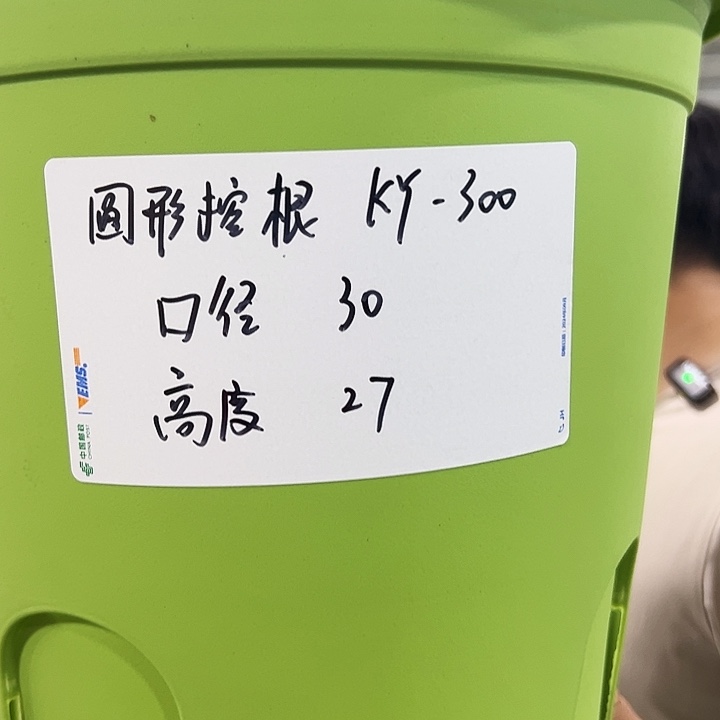 圆形控根 KY-300
口径 30
高度 27
EMS
中国邮政
CHINA POST